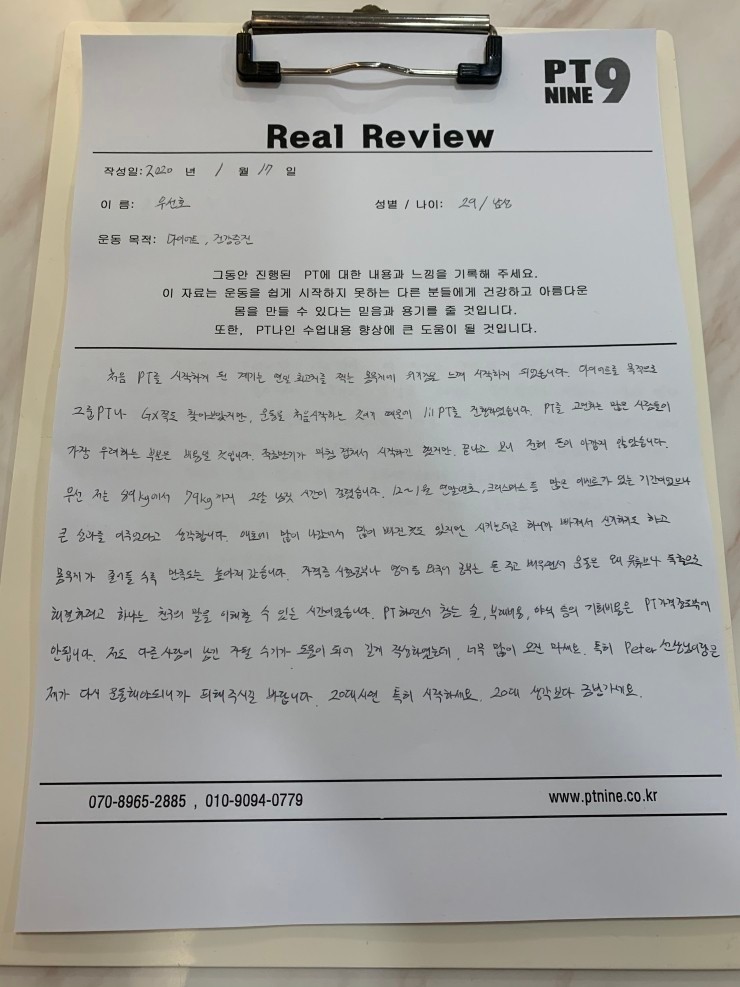 PT 9
NINE
Real Review
작성일: 2020 년 1 월 17 일
이 름: 우선호
성별 / 나이: 29 / 남성
운동 목적: 다이어트, 건강증진
그동안 진행된 PT에 대한 내용과 느낌을 기록해 주세요.
이 자료는 운동을 쉽게 시작하지 못하는 다른 분들에게 건강하고 아름다운
몸을 만들 수 있다는 믿음과 용기를 줄 것입니다.
또한, PT나인 수업내용 향상에 큰 도움이 될 것입니다.
처음 PT를 시작하게 된 계기는 연일 최고치를 찍는 몸무게에 위기감을 느껴 시작하게 되었습니다. 다이어트를 목적으로
그룹PT나 GX쪽도 찾아보았지만, 운동을 처음시작하는 것이기 때문에 1:1PT를 진행하였습니다. PT를 고민하는 많은 사람들이
가장 우려하는 부분은 비용일 것입니다. 저도 시작하긴 했지만, 끝나고 보니 전혀 돈이 아깝지 않았습니다.
우선 저는 89kg에서 79kg까지 2달 남짓 시간이 걸렸습니다. 12~1월 연말연초, 크리스마스 등 많은 이벤트가 있는 기간이었으나
큰 성과를 이루었다고 생각합니다. 애초에 많이 나갔어서 많이 빠진것도 있지만 시키는대로 하니까 빠져서 신기하기도 하고
몸무게가 줄어들 수록 만족도는 높아져 갔습니다. 자격증 시험공부나 영어등 외국어 공부는 돈 주고 배우면서 운동은 왜 유튜브나 독학으로
해결하려고 하냐는 친구의 말을 이해할 수 있는 시간이었습니다. PT하면서 참는 술, 부페비용, 야식 등의 기회비용은 PT가격정도밖에
안됩니다. 저도 다른사람이 남긴 후기가 도움이 되어 길게 작성하였는데, 너무 많이 오진 마세요. 특히 Peter 선생님시간은
제가 다시 운동해야되니까 피해주시길 바랍니다. 20대시면 특히 시작하세요. 20대 생각보다 금방가네요.
070-8965-2885 , 010-9094-0779
www.ptnine.co.kr